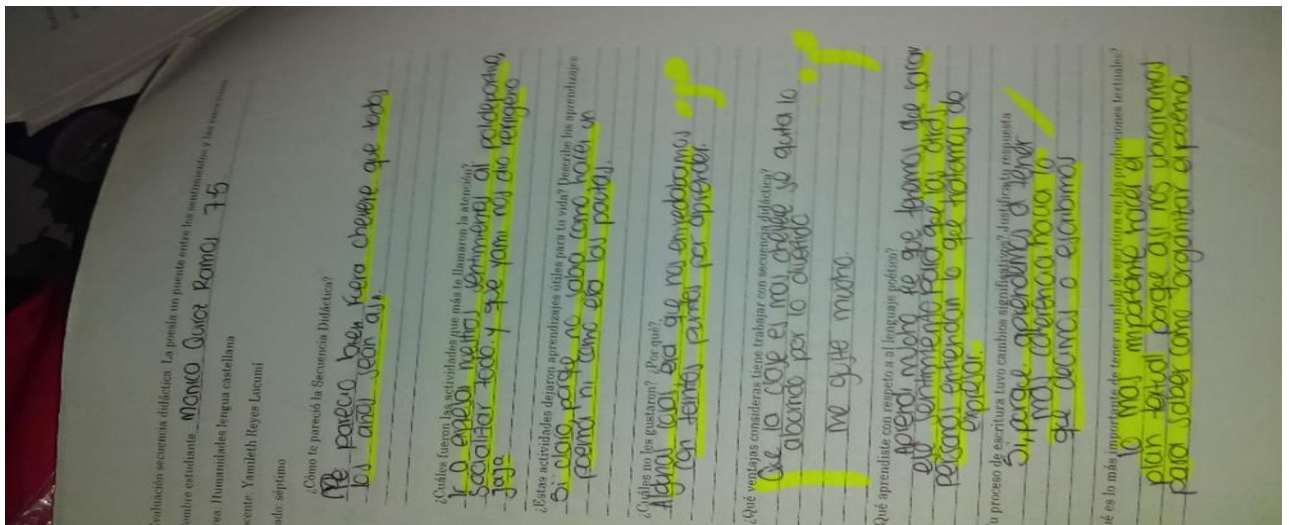 valuación secuencia didáctica. La poesía un puente entre los sentimientos y las emociones
ombre estudiante Manico Quiroz Ramos 7-5
rea. Humanidades lengua castellana
ocente. Yamileth Reyes Lucumí
ado: séptimo
¿Cómo te pareció la Secuencia Didáctica?
Me parecio bien fuera chevere que todos
los años sean asi.
¿Cuáles fueron las actividades que más te llamaron la atención?
Ir a empelar nettros sentimientos al polideportivo,
Socializar todo. y que yami nos dio refrigerio
jaja
¿Estas actividades dejaron aprendizajes útiles para tu vida? Describe los aprendizajes
Si claro, porque no sabia como hacer un
poema ni como era las pautas.
¿Cuáles no les gustaron? ¿Por qué?
Algunas cosas era que nos enredabamos
con tantos puntos por aprender.
¿Qué ventajas consideras tiene trabajar con secuencia didáctica?
Que la clase es mas chevere se quita lo
aburrido por lo divertido
me guste mucho.
Qué aprendiste con respeto a al lenguaje poético?
Aprendi mucho se que tramos de sacar
ese sentimiento para que las otras
personas entiendan lo que tratamos de
expresar.
u proceso de escritura tuvo cambios significativos? Justifica tu respuesta
Si, porque aprendemos a tener
mas coherencia hacia lo
que decimos o escribimos
ué es lo más importante de tener un plan de escritura en las producciones textuales?
lo mas importante hacer el
plan textual porque alli nos ubicamos
para saber como organizar el poema.